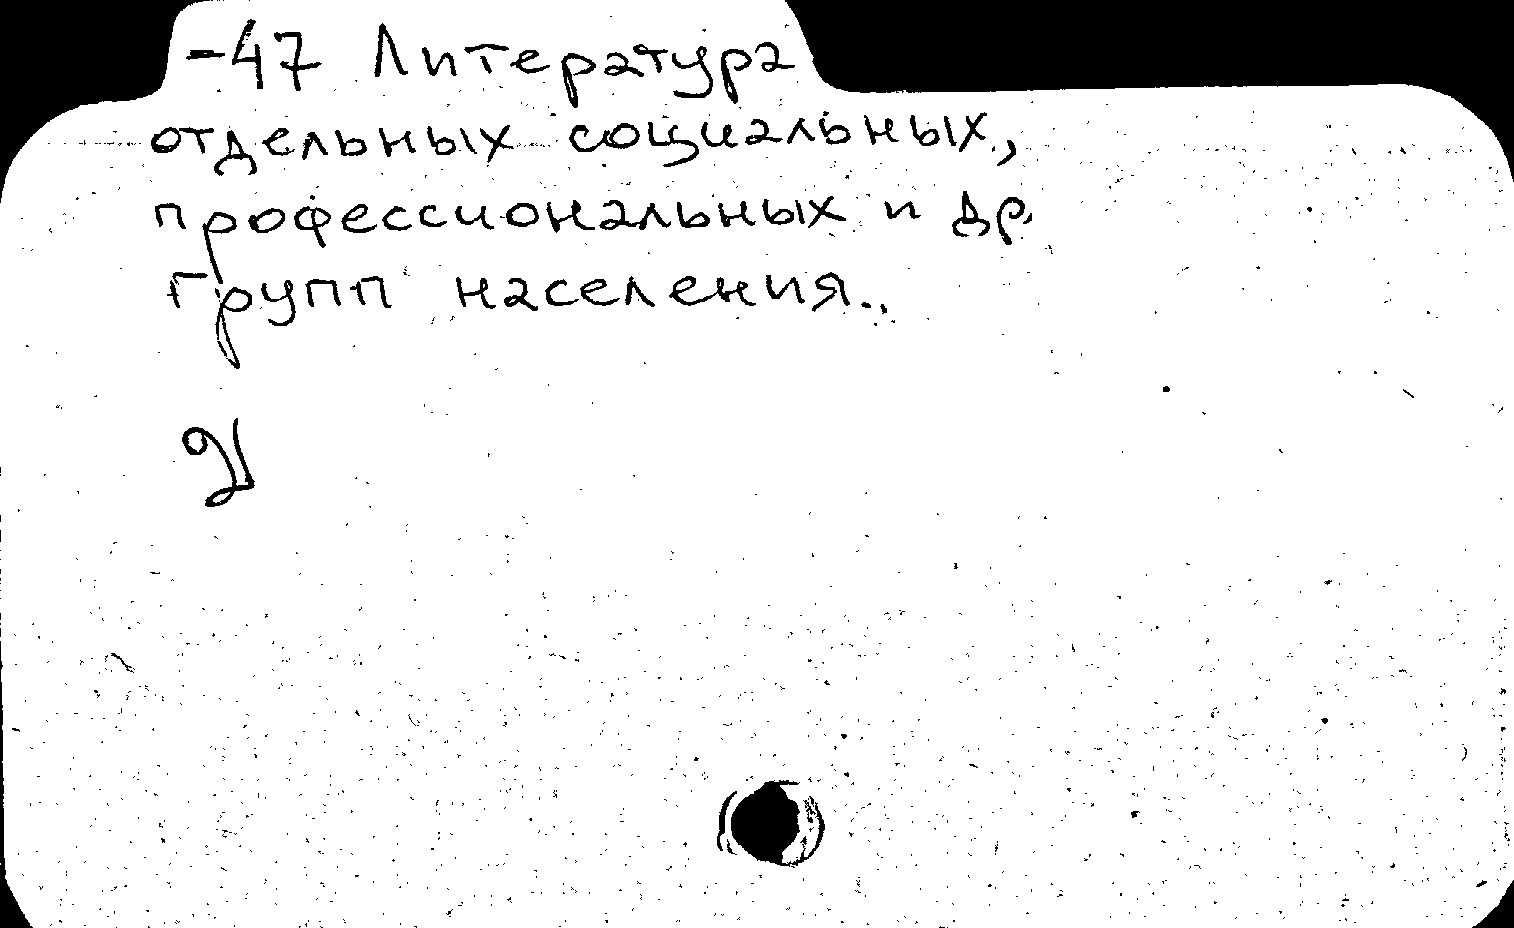 -47 Литература
отдельных социальных,
профессиональных и др.
групп населения..